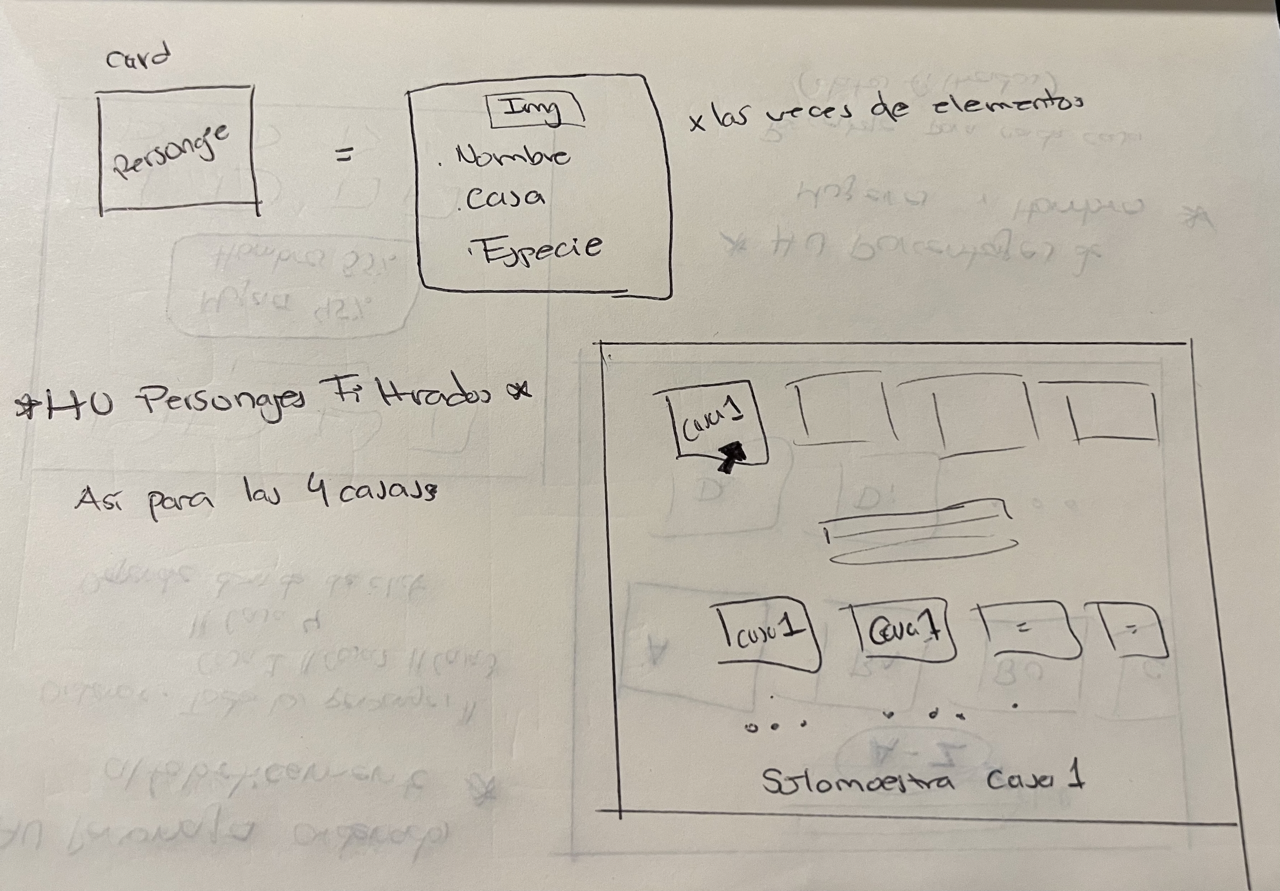 Card
Personaje
=
Img
. Nombre
. Casa
. Especie
x las veces de elementos
*HU Personajes Filtrados *
Así para las 4 casas
Casa 1
casa 1
Casa 1
=
=
Solo muestra Casa 1